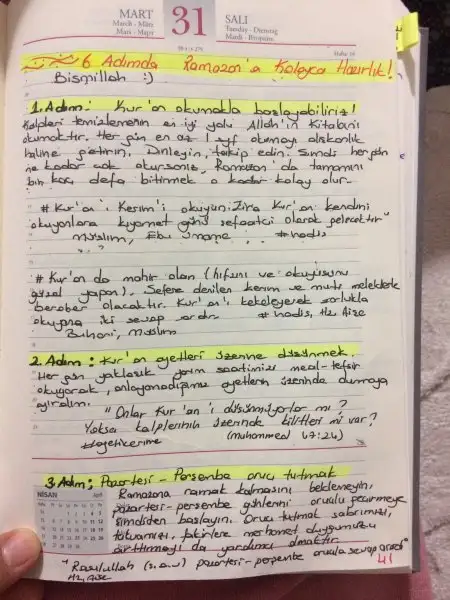 MART
March - März
Mars - Mapт
31
SALI
Tuesday - Dienstag
Mardi - Вторник
Hafta 14
6 Adımda Ramazan'a Kolayca Hazırlık!
Bismillah :)
1. Adım: Kur'an okumakla başlayabiliriz!
Kalpleri temizlemenin en iyi yolu Allah'ın Kitabını
okumaktır. Her gün en az 1 syf okumayı alışkanlık
haline getirin. Dinleyin, takip edin. Şimdi her gün
ne kadar çok okursanız, Ramazan'da tamamını
bir kaç defa bitirmek o kadar kolay olur.
# Kur'an'ı Kerim'i okuyun. Zira Kur'an kendini
okuyanlara kıyamet günü şefaatci olarak gelecektir"
Müslim, Ebu Umame #hadis
# Kur'an da mahir olan (hıfzını ve okuyuşunu
güzel yapan), Sefere denilen kerim ve muti meleklerle
beraber olacaktır. Kur'an'ı kekeleyerek zorlukla
okuyana iki sevap vardır. #hadis, Hz. Aişe
Buhari, Müslim
2. Adım: Kur'an ayetleri üzerine düşünmek.
Her gün yaklaşık yarım saatimizi meal-tefsir
okuyarak, anlayamadığımız ayetlerin üzerinde durmaya
ayıralım.
"Onlar Kur'an'ı düşünmüyorlar mı?
Yoksa kalplerinin üzerinde kilitleri mi var?
#ayetikerime (Muhammed 47:24)
3. Adım: Pazartesi - Perşembe orucu tutmak
NİSAN April
Ramazana ramak kalmasını beklemeyin,
pazartesi-perşembe günlerini oruçlu geçirmeye
şimdiden başlayın. Oruç tutmak sabrımızı,
takvamızı, fakirlere merhamet duygumuzu
arttırmayı da yardımcı olmaktır.
"Rasulullah (s.a.v) pazartesi-perşembe orucuna sevap arardı"
Hz. Aişe
41